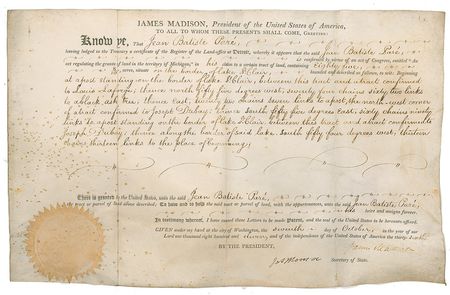 JAMES MADISON, President of the United States of America,
TO ALL TO WHOM THESE PRESENTS SHALL COME, GREETING:
Know ye, That Jean Batiste Paré,
having lodged in the Treasury a certificate of the Register of the Land-office at Detroit, whereby it appears that the said Jean Batiste Paré,
confirmed by virtue of an act of Congress, entitled "An
act regulating the grants of land in the territory of Michigan," in his claim to a certain tract of land, containing Eighty five,
acres, situate on the border of lake St Clair, bounded and described as follows, to wit: Beginning
at a post standing on the border of lake St Clair, between this tract and a tract confirmed
to Louis Laforge, thence north fifty five degrees west, seventy four chains sixty two links
to a black ash tree, thence east, twenty two chains seven links to a post, the north-west corner
of a tract confirmed to Joseph Dubay, thence south fifty five degrees east, sixty chains ninety
links to a post standing on the border of lake St Clair, between this tract and a tract confirmed to
Joseph Dubay, thence along the border of said lake south fifty four degrees west, thirteen
chains thirteen links to the place of beginning;
There is granted by the United States, unto the said Jean Batiste Paré, the
tract or parcel of land above described, To have and to hold the said tract or parcel of land, with the appurtenances, unto the said Jean Batiste
Paré, his heirs and assigns forever.
In testimony whereof, I have caused these Letters to be made Patent, and the seal of the United States to be hereunto affixed.
GIVEN under my hand at the city of Washington, the seventh day of October, in the year of
our Lord one thousand eight hundred and eleven, and of the independence of the United States of America the thirty-sixth.
BY THE PRESIDENT,
James Madison
Jas Monroe Secretary of State.